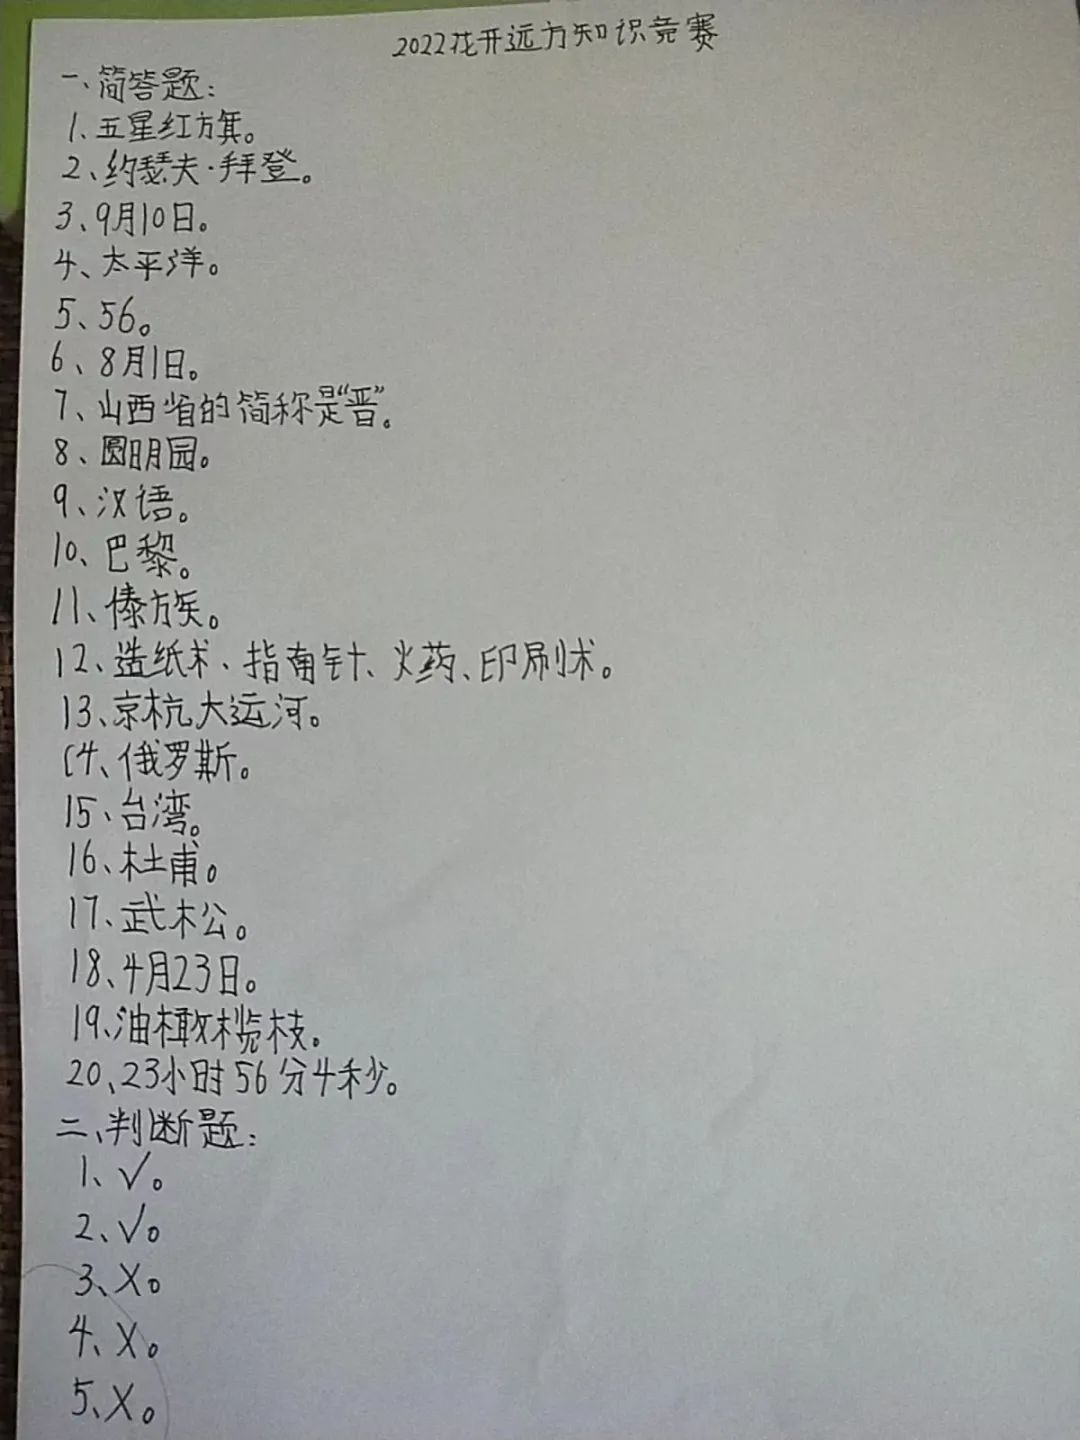 2022花开远方知识竞赛
一、简答题：
1、五星红旗。
2、约瑟夫·拜登。
3、9月10日。
4、太平洋。
5、56。
6、8月1日。
7、山西省的简称是“晋”。
8、圆明园。
9、汉语。
10、巴黎。
11、傣族。
12、造纸术、指南针、火药、印刷术。
13、京杭大运河。
14、俄罗斯。
15、台湾。
16、杜甫。
17、武松公。
18、4月23日。
19、油橄榄枝。
20、23小时56分4秒。
二、判断题：
1、√。
2、√。
3、X。
4、X。
5、X。